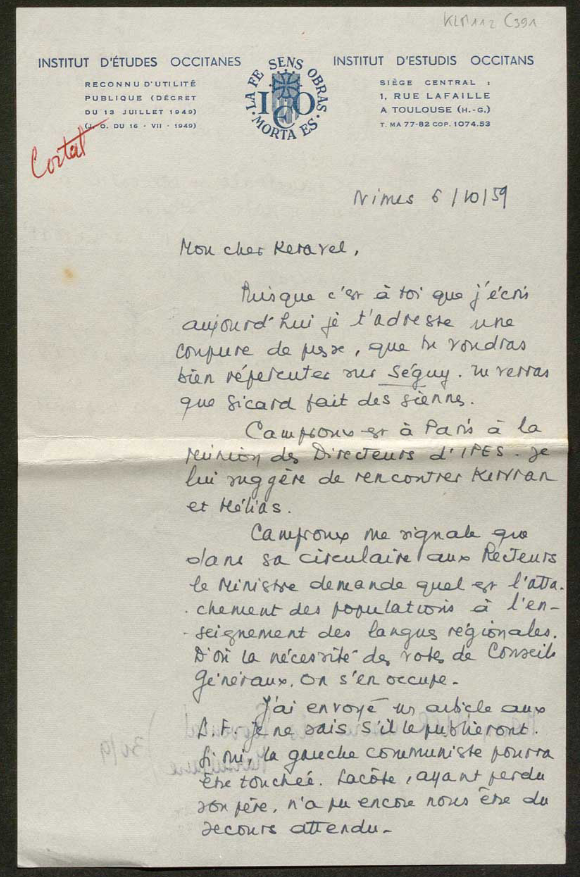 KLM112 C391
INSTITUT D'ÉTUDES OCCITANES
RECONNU D'UTILITÉ
PUBLIQUE (DÉCRET
DU 13 JUILLET 1949)
(J.O. DU 16 - VII - 1949)
LA FE SENS OBRAS
MORTA ES
IEO
INSTITUT D'ESTUDIS OCCITANS
SIÈGE CENTRAL :
1, RUE LAFAILLE
A TOULOUSE (H.-G.)
T. MA 77-82 COP. 1074.53
Nîmes 6/10/59
Mon cher Keravel,
Puisque c'est à toi que j'écris
aujourd'hui je t'adresse une
coupure de presse, que tu voudras
bien répercuter sur Séguy. Tu verras
que Sicard fait des siennes.
Camproux est à Paris à la
réunion des Directeurs d'IPES. Je
lui suggère de rencontrer Kervran
et Hélias.
Camproux me signale que
dans sa circulaire aux Recteurs
le Ministre demande quel est l'atta-
-chement des populations à l'en-
-seignement des langues régionales.
D'où la nécessité des votes de Conseils
Généraux. On s'en occupe.
J'ai envoyé un article aux
L.F. je ne sais s'il le publieront.
Si oui, la gauche communiste pourra
être touchée. Lacôte, ayant perdu
son père, n'a pu encore nous être du
secours attendu.
30/9